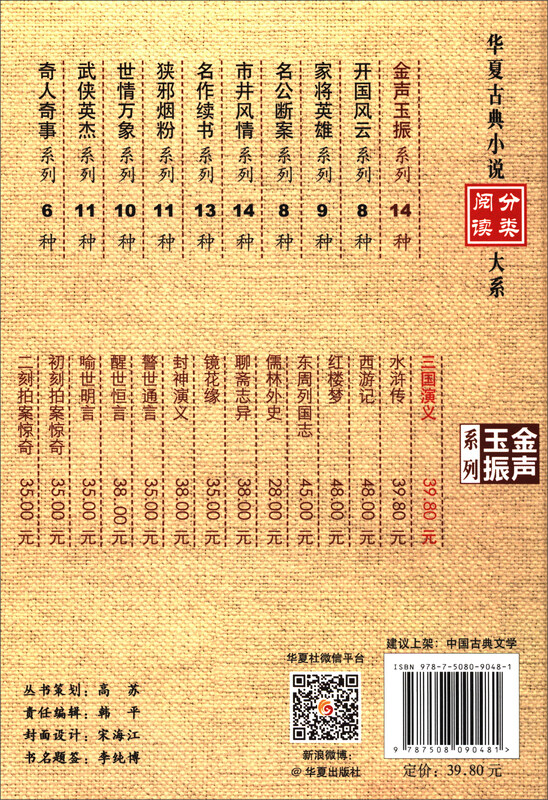 华夏古典小说
分类
阅读
大系
金声玉振 系列 14 种
开国风云 系列 8 种
家将英雄 系列 9 种
名公断案 系列 8 种
市井风情 系列 14 种
名作续书 系列 13 种
狭邪烟粉 系列 11 种
世情万象 系列 10 种
武侠英杰 系列 11 种
奇人奇事 系列 6 种
金声
玉振
系列
三国演义 39.80 元
水浒传 39.80 元
西游记 48.00 元
红楼梦 48.00 元
东周列国志 45.00 元
儒林外史 28.00 元
聊斋志异 38.00 元
镜花缘 35.00 元
封神演义 38.00 元
警世通言 35.00 元
醒世恒言 38.00 元
喻世明言 35.00 元
初刻拍案惊奇 35.00 元
二刻拍案惊奇 35.00 元
丛书策划：高 苏
责任编辑：韩 平
封面设计：宋海江
书名题签：李纯博
华夏社微信平台
新浪微博：
@华夏出版社
建议上架：中国古典文学
ISBN 978-7-5080-9048-1
9 787508 090481 >
定价：39.80 元